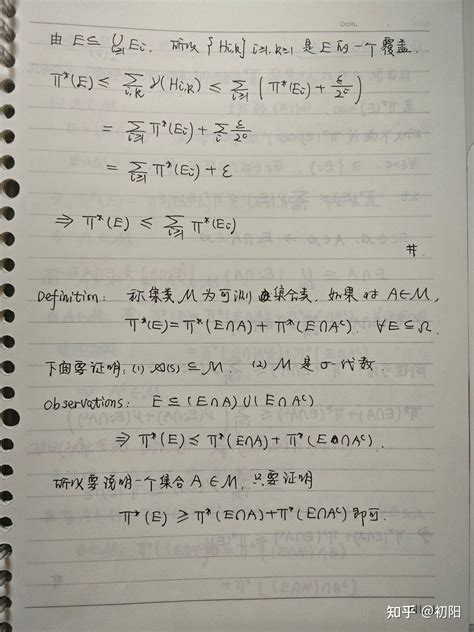 Date.
由 E⊆ ⋃_{i≥1} Ei, 所以 {Hi,k} i≥1,k≥1 是 E 的一个覆盖.
π*(E) ≤ ∑_{i,k} γ(Hi,k) ≤ ∑_{i≥1} ( π*(Ei) + ε/2^i )
= ∑_{i≥1} π*(Ei) + ∑_i ε/2^i
= ∑_{i≥1} π*(Ei) + ε
⇒ π*(E) ≤ ∑_{i≥1} π*(Ei)
#
Definition: 称集类 M 为可测集合类, 如果对 A∈M,
π*(E) = π*(E∩A) + π*(E∩A^c). ∀E⊆Ω.
下面要证明, (1) (S) ⊆ M. (2) M 是 σ-代数
Observations: E ⊆ (E∩A) ∪ (E∩A^c)
⇒ π*(E) ≤ π*(E∩A) + π*(E∩A^c).
所以要说明一个集合 A∈M, 只要证明
π*(E) ≥ π*(E∩A) + π*(E∩A^c) 即可.
知乎 @初阳